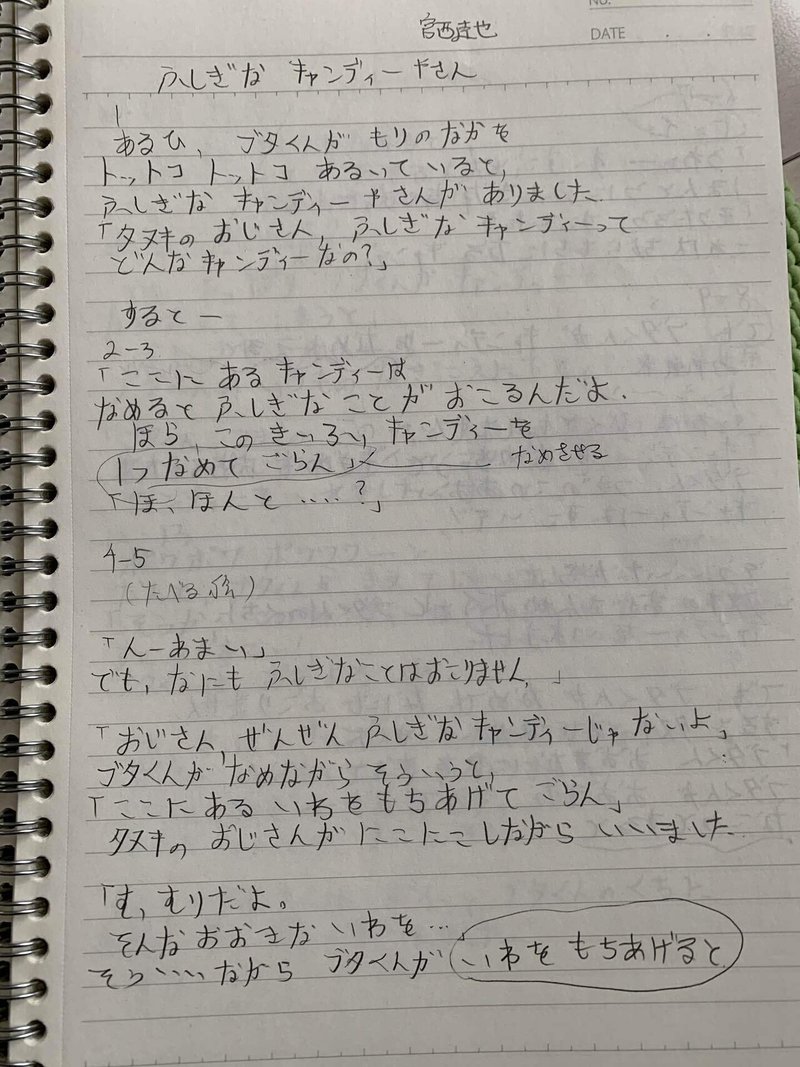 NO.
宮西達也
DATE . .
ふしぎな キャンディーやさん
1
あるひ、ブタくんが もりのなかを
トットコ トットコ あるいて いると、
ふしぎな キャンディーやさんが ありました.
「タヌキの おじさん, ふしぎな キャンディーって
どんな キャンディーなの?」
すると ー
2-3
「ここに ある キャンディーは
なめると ふしぎな ことが おこるんだよ.
ほら、この きいろい キャンディーを
1つ なめて ごらん」 なめさせる
「ほ、ほんと ……?」
4-5
(たべる 絵)
「んーあまーい」
でも, なにも ふしぎなことはおこりません, 」
「おじさん, ぜんぜん ふしぎな キャンディーじゃ ないよ」
ブタくんが なめながら そういうと,
「ここに ある いわを もちあげて ごらん」
タヌキの おじさんが にこにこしながら いいました
「む, むりだよ。
そんな おおきな いわを…」
そう いいながら ブタくんが いわを もちあげると